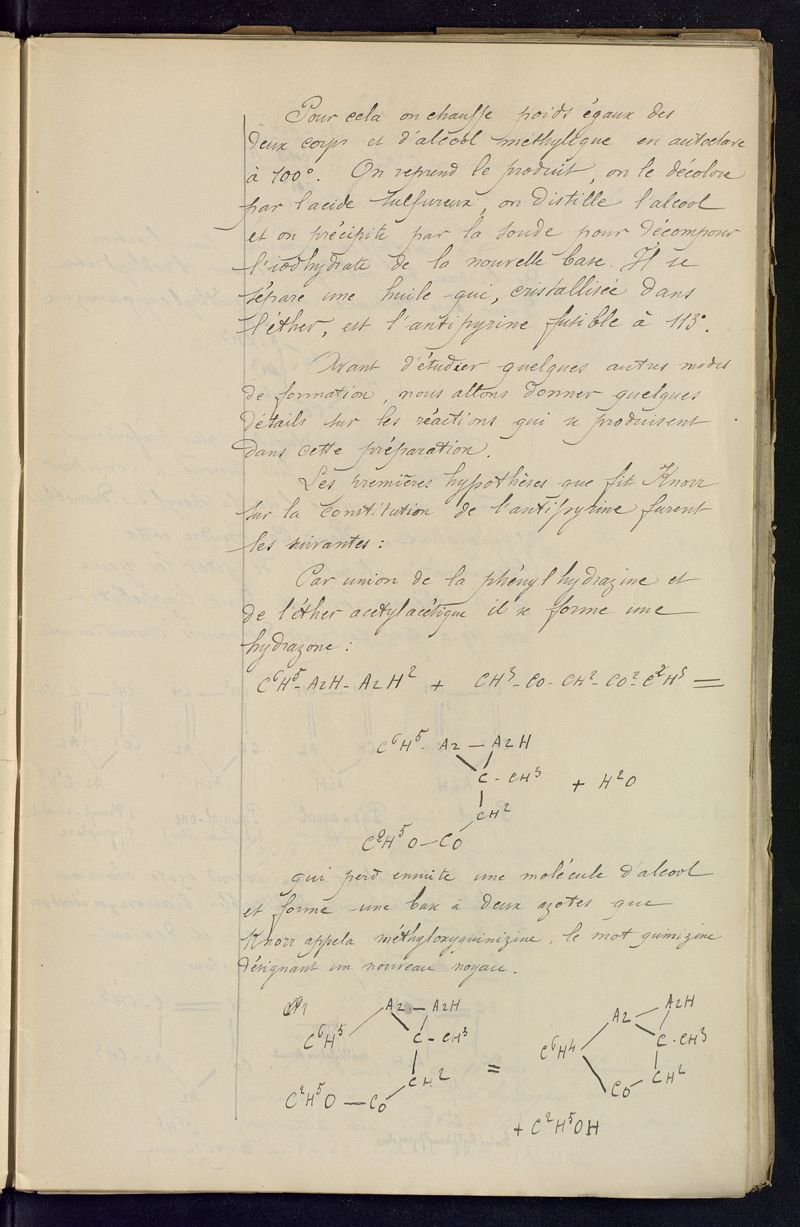 Pour cela on chauffe poids égaux des
deux corps et d'alcool méthylique en autoclave
à 100°. On reprend le produit, on le décolore
par l'acide sulfureux, on distille l'alcool
et on précipite par la soude pour décomposer
l'iodhydrate de la nouvelle base. Il se
sépare une huile qui, cristallisée dans
l'éther, est l'antipyrine fusible à 113°.
Avant d'étudier quelques autres modes
de formation, nous allons donner quelques
détails sur les réactions qui se produisent
dans cette préparation.
Les premières hypothèses que fit Knorr
sur la constitution de l'antipyrine furent
les suivantes :
Par union de la phénylhydrazine et
de l'éther acétylacétique il se forme une
hydrazone :
C⁶H⁵- AzH- AzH² + CH³- CO- CH²- CO²- C²H⁵ =
C⁶H⁵- Az — AzH
C - CH³ + H²O
CH²
C²H⁵O — CO
qui perd ensuite une molécule d'alcool
et forme une base à deux azotes que
Knorr appela méthyloxyquinizine, le mot quinizine
désignant un nouveau noyau.
Az — AzH Az — AzH
C⁶H⁵ C - CH³ C⁶H⁴ C - CH³
CH² = CH²
C²H⁵O — CO CO
+ C²H⁵OH